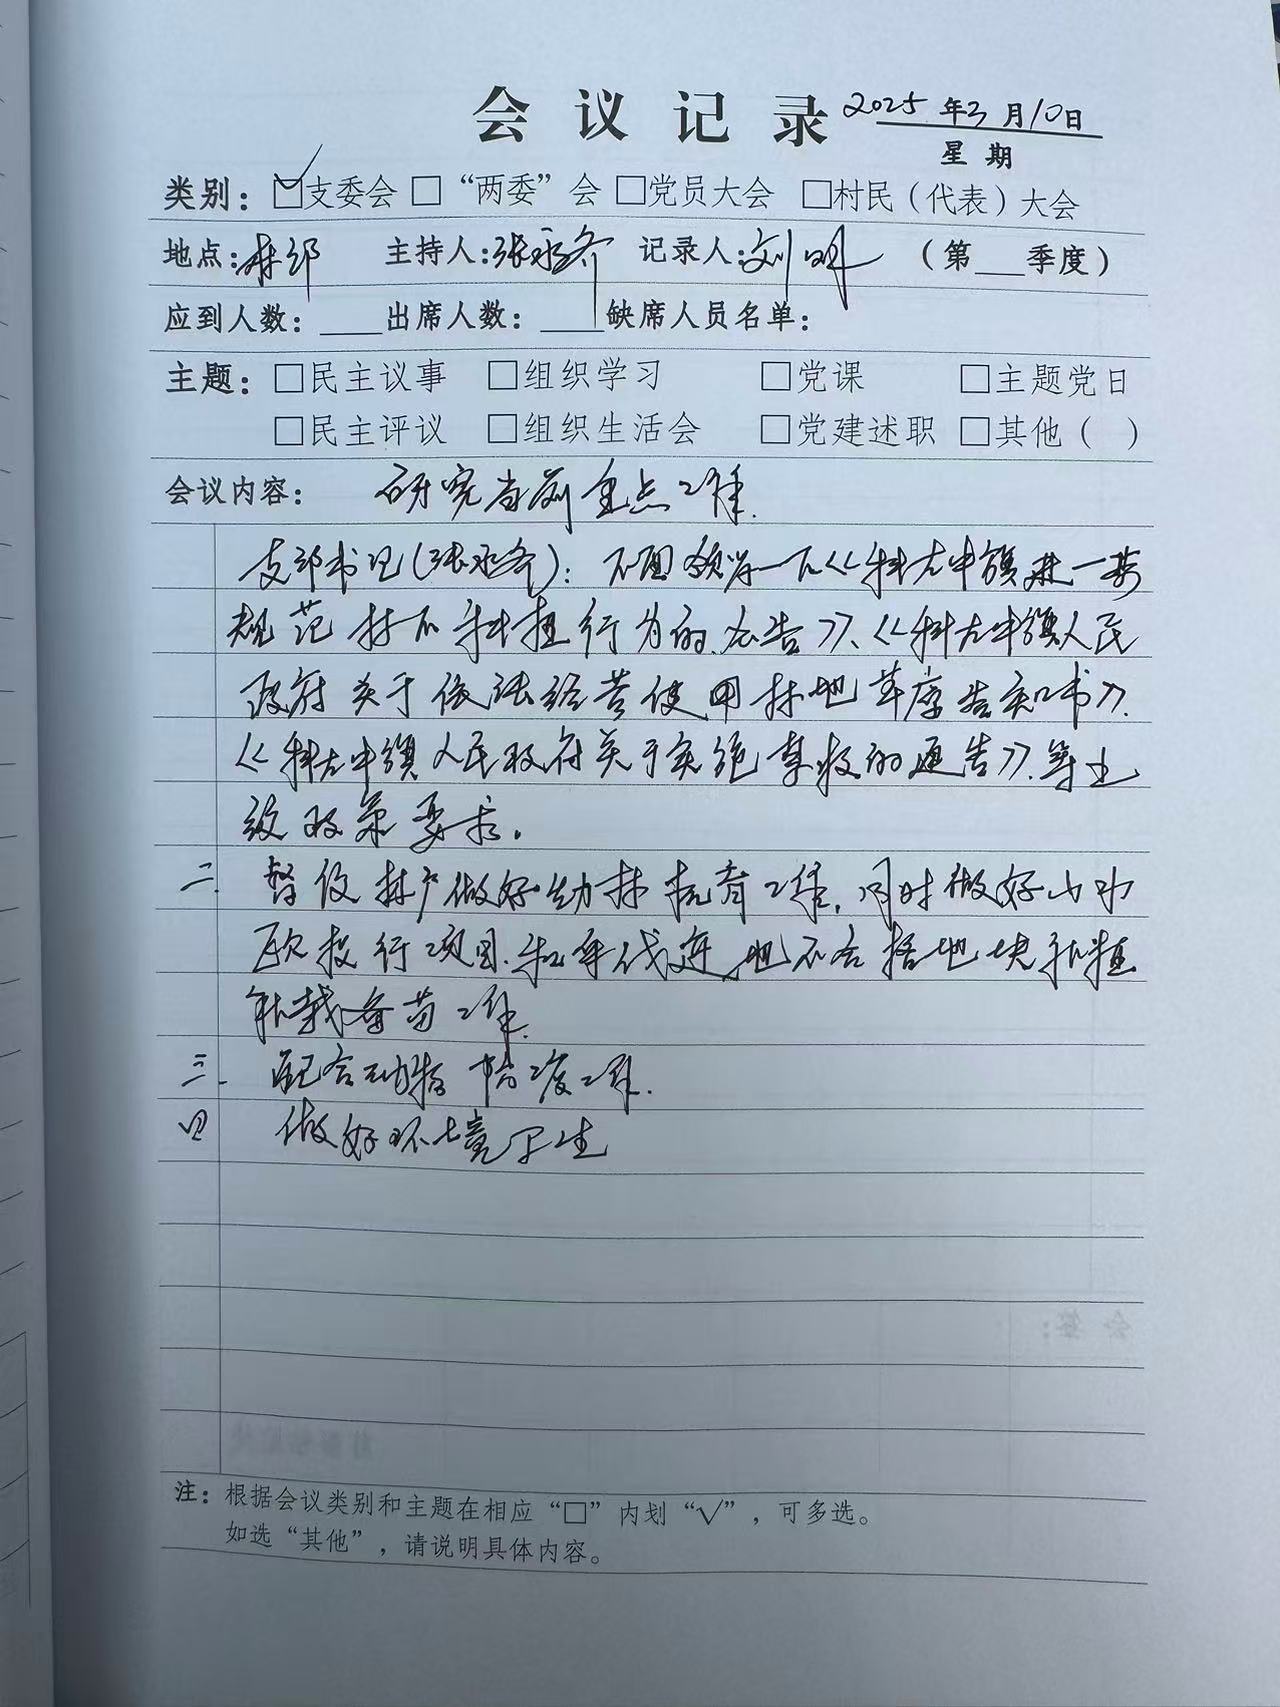 会议记录 2025年3月10日
星期
类别：☑支委会 □“两委”会 □党员大会 □村民（代表）大会
地点：村部 主持人：张永奇 记录人：刘明 （第___季度）
应到人数：____出席人数：____缺席人员名单：
主题：□民主议事 □组织学习 □党课 □主题党日
□民主评议 □组织生活会 □党建述职 □其他（ ）
会议内容： 研究当前重点工作.
支部书记(张永奇)：下面领学一下《科左中旗进一步
规范林下种植行为的公告》、《科左中旗人民
政府关于依法经营使用林地草原告知书》.
《科左中旗人民政府关于实施禁牧的通告》等上
级政策要求。
二. 督促林户做好幼林抚育工作，同时做好
两行项目.和 地不合格地块补植
补栽备苗工作.
三. 配合动物防疫工作.
四 做好环境卫生
注：根据会议类别和主题在相应“□”内划“√”，可多选。
如选“其他”，请说明具体内容。